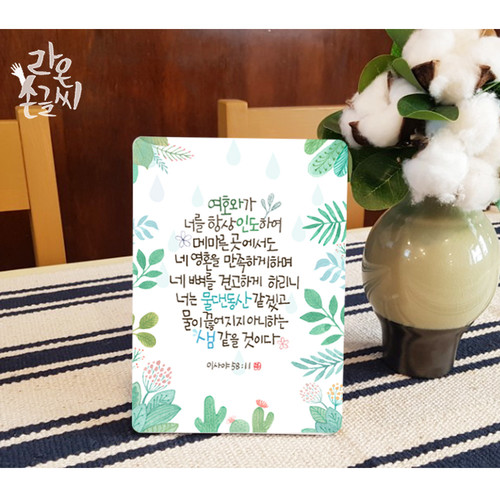 라온
손글씨
여호와가
너를 항상 인도하여
메마른 곳에서도
네 영혼을 만족하게하며
네 뼈를 견고하게 하리니
너는 물댄동산 같겠고
물이 끊어지지아니하는
샘 같을 것이다
이사야 58:11